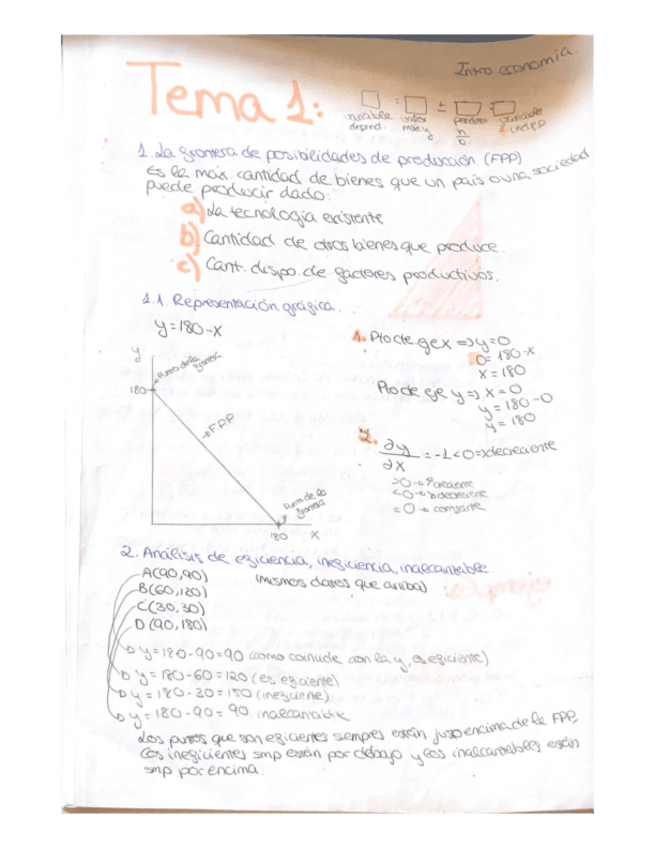 Intro economía.
Tema 1:
□ = □ ± □ · □
variable depend. interc. mas y pendien n/0 variable indep
1. La frontera de posibilidades de producción. (FPP)
Es la max. cantidad de bienes que un pais o una sociedad
puede producir dado:
a) La tecnología existente
b) Cantidad de otros bienes que produce.
c) Cant. dispo. de factores productivos.
1.1 Representación gráfica.
y=180-x
y
180
Punto de la frontera
FPP
Punto de la frontera
180 x
1. Pto cte. eje x => y=0
0=180-x
x=180
Pto cte eje y => x=0
y=180-0
y=180
2. ∂y/∂x = -1<0 => decreciente
>0 → creciente
<0 → decreciente
=0 → constante
2. Análisis de eficiencia, ineficiencia, inalcanzable.
A(90,90) (mismos datos que arriba)
B(60,120)
C(30,30)
D(90,180)
y=180-90=90 (como coincide con la y, es eficiente)
y=180-60=120 (es eficiente)
y=180-30=150 (ineficiente)
y=180-90=90 inalcanzable
Los puntos que son eficientes siempre están justo encima de la FPP,
los ineficientes smp están por debajo y los inalcanzables están
smp por encima.